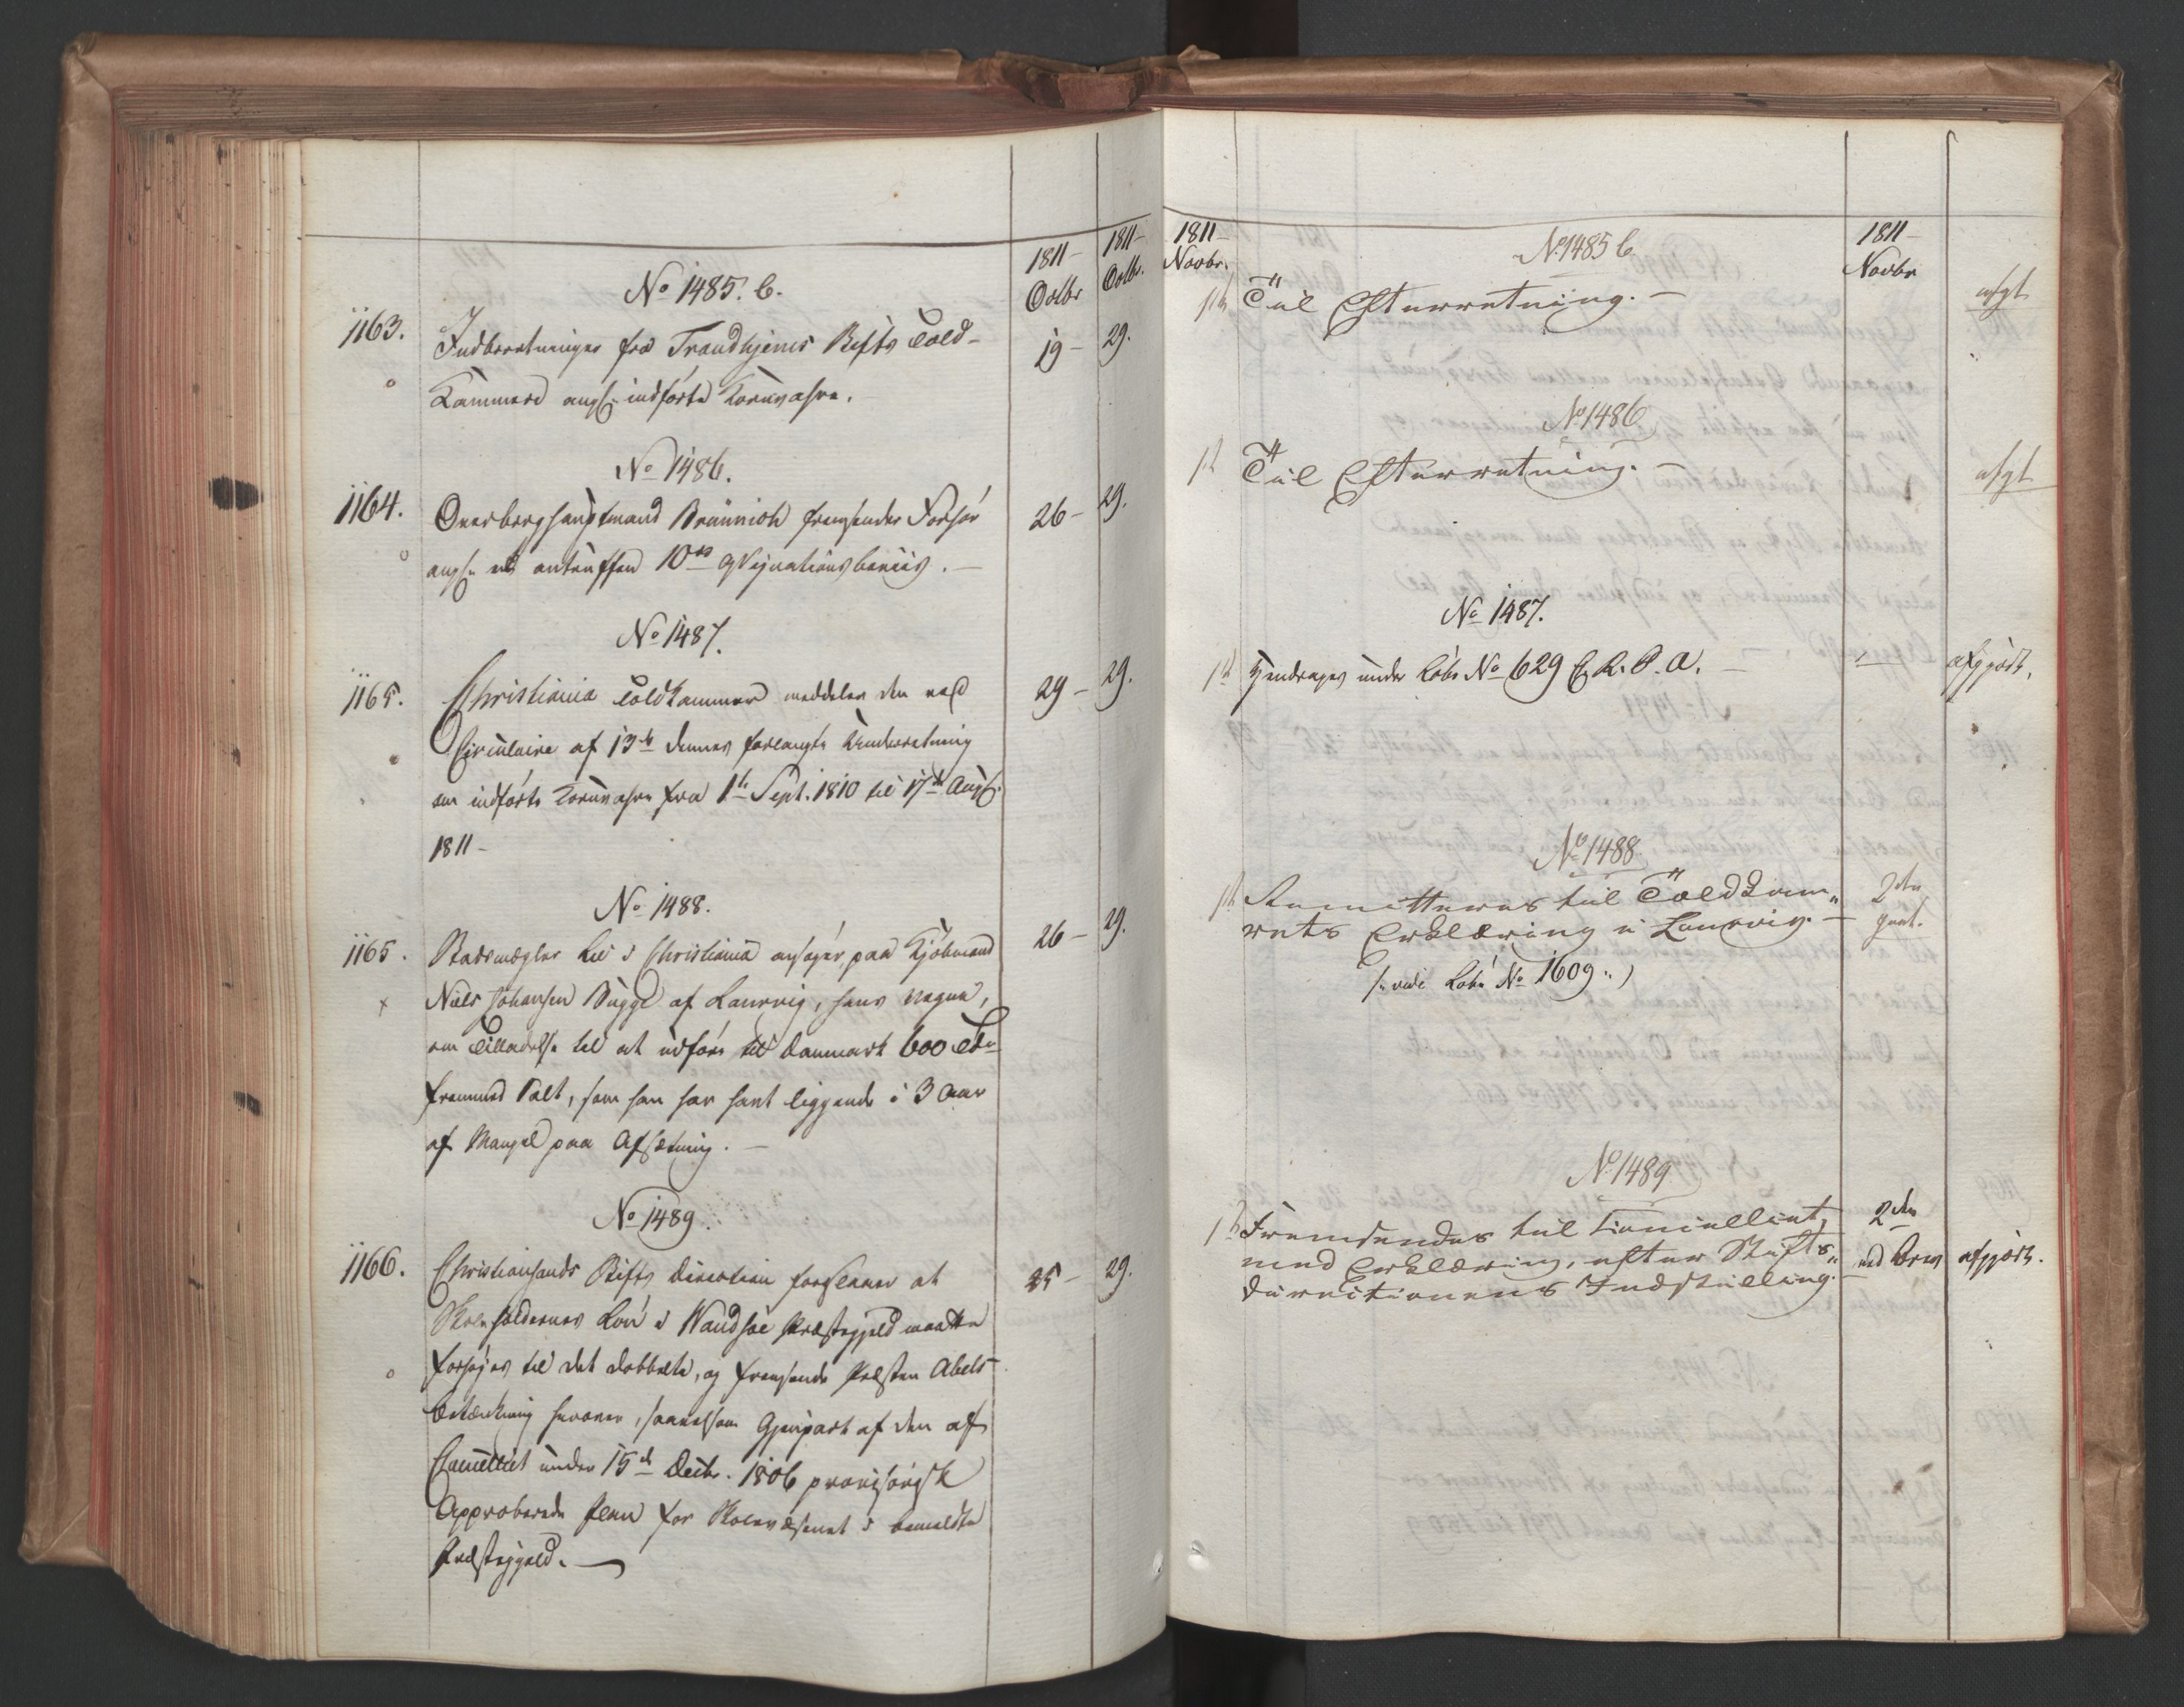 1811 -
Octbr
1811 -
Octbr.
No 1485. b.
1163. Indberetninger fra Trondhjems Stifts Told- 19 - 29.
Kammere angl. indførte Kornvahre.
No 1486.
1164. Overberghauptmand Brünnich fremsender Forhör 26 - 29.
angl. en antruffen 10 rd
No 1487.
1165. Christiania Toldkammer meddeler den ved 29 - 29.
Circulaire af 13de dennes forlangte Underretning
om indførte Kornvahre fra 1te Sept. 1810 til 17de Aug.
1811 -
No 1488.
1165. Stadsmægler Lie i Christiania ansøger, paa Kjöbmand 26 - 29.
Niels Johansen Bugge af Laurvig, hans Vegne,
om Tilladelse til at udføre til Danmark 600 Tdr
fremmed Salt, som han har havt liggende i 3 Aar
af Mangel paa Afsætning. -
No 1489.
1166. Christiansands Stifts Direction foreslaaer at 25 - 29.
Skoleholdernes Løn i Wandsöe Præstegjeld maatte
forhøjes til det dobbelte, og fremsende Præsten Abels
Betænkning herover, saavelsom Gjenpart af den af
Cancelliet under 15de Decbr. 1806 provisorisk
Approberede Plan for Skolevæsenet i bemeldte
Præstegjeld. -
1811 -
Novbr.
1811 -
Novbr
No 1485 b.
1ste Til Efterretning. - afgl.
No 1486
1ste Til Efterretning. - afgl.
No 1487.
1ste Hendrages under Løbe No 629 E. R. P. A. - afgjort.
No 1488.
1ste Remitteres til Toldkam„ 2den
rets Erklæring i Laurvig. -
/: vide Lobe No 1609 :/
No 1489
1ste Fremsendes til Cancelliet, 2den
med Erklæring, efter Stifts„ ved Brev afgjort.
directionens Indstilling. -